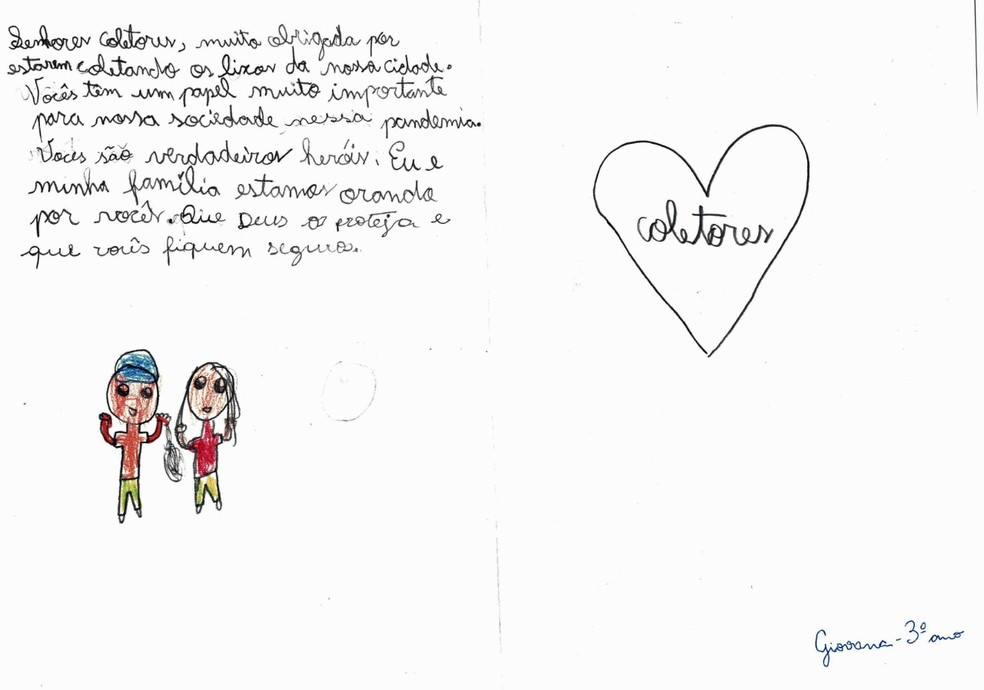 Senhores coletores, muito obrigada por
estarem coletando os lixos da nossa cidade.
Vocês têm um papel muito importante
para nossa sociedade nessa pandemia.
Voces são verdadeiros heróis. Eu e
minha família estamos orando
por vocês. Que Deus os proteja e
que vocês fiquem seguros.
coletores
Giovana - 3º ano